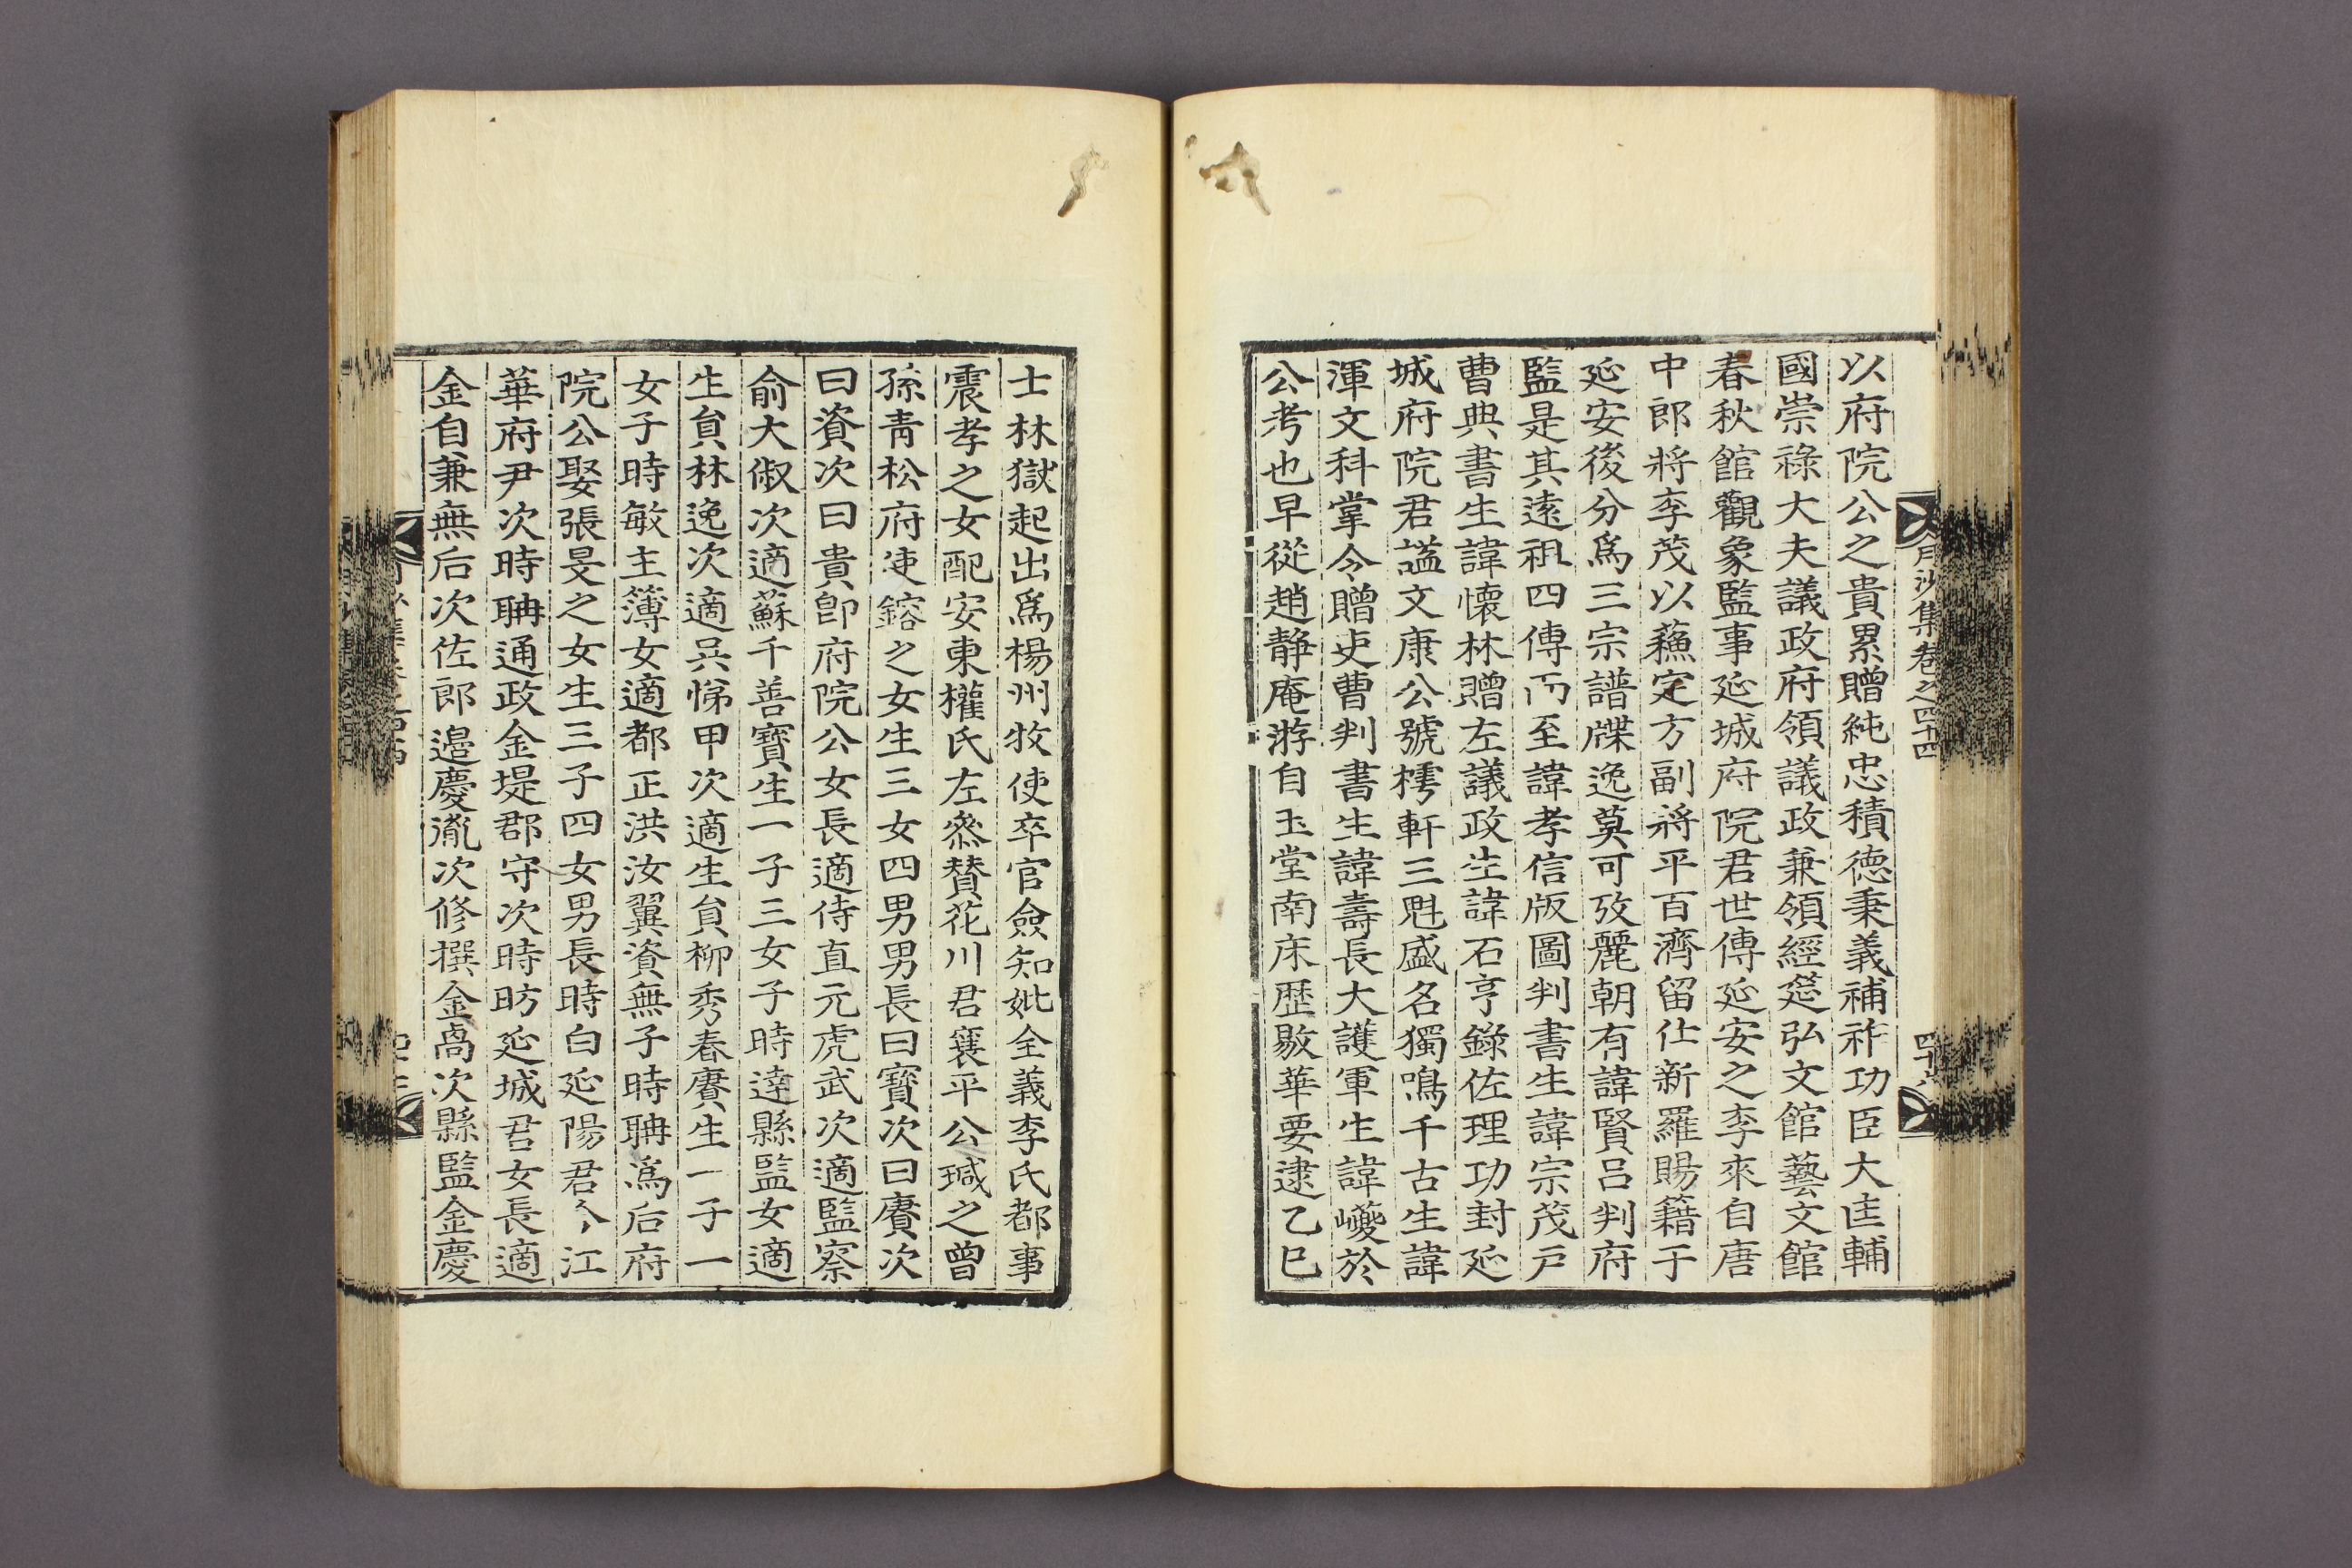 月沙集卷之四十四
四十六
以府院公之貴累贈純忠積德秉義補祚功臣大匡輔
國崇祿大夫議政府領議政兼領經筵弘文館藝文館
春秋館觀象監事延城府院君世傳延安之李來自唐
中郎將李茂以蘓定方副將平百濟留仕新羅賜籍于
延安後分爲三宗譜牒逸莫可攷麗朝有諱賢呂判府
監是其遠祖四傳而至諱孝信版圖判書生諱宗茂戶
曹典書生諱懷林贈左議政生諱石亨錄佐理功封延
城府院君謚文康公號樗軒三魁盛名獨鳴千古生諱
渾文科掌令贈吏曹判書生諱壽長大護軍生諱巙於
公考也早從趙靜庵游自玉堂南床歷敭華要逮乙巳
士林獄起出爲楊州牧使卒官僉知妣全義李氏都事
震孝之女配安東權氏左叅贊花川君襄平公瑊之曾
孫靑松府使鎔之女生三女四男男長曰寶次曰賡次
曰資次曰貴卽府院公女長適侍直元虎武次適監察
俞大俶次適蘇千善寶生一子三女子時逹縣監女適
生貟林逸次適吳悌甲次適生貟柳秀春賡生一子一
女子時敏主簿女適都正洪汝翼資無子時聃爲后府
院公娶張旻之女生三子四女男長時白延陽君今江
華府尹次時聃通政金堤郡守次時昉延城君女長適
金自兼無后次佐郎邉慶胤次修撰金卨次縣監金慶